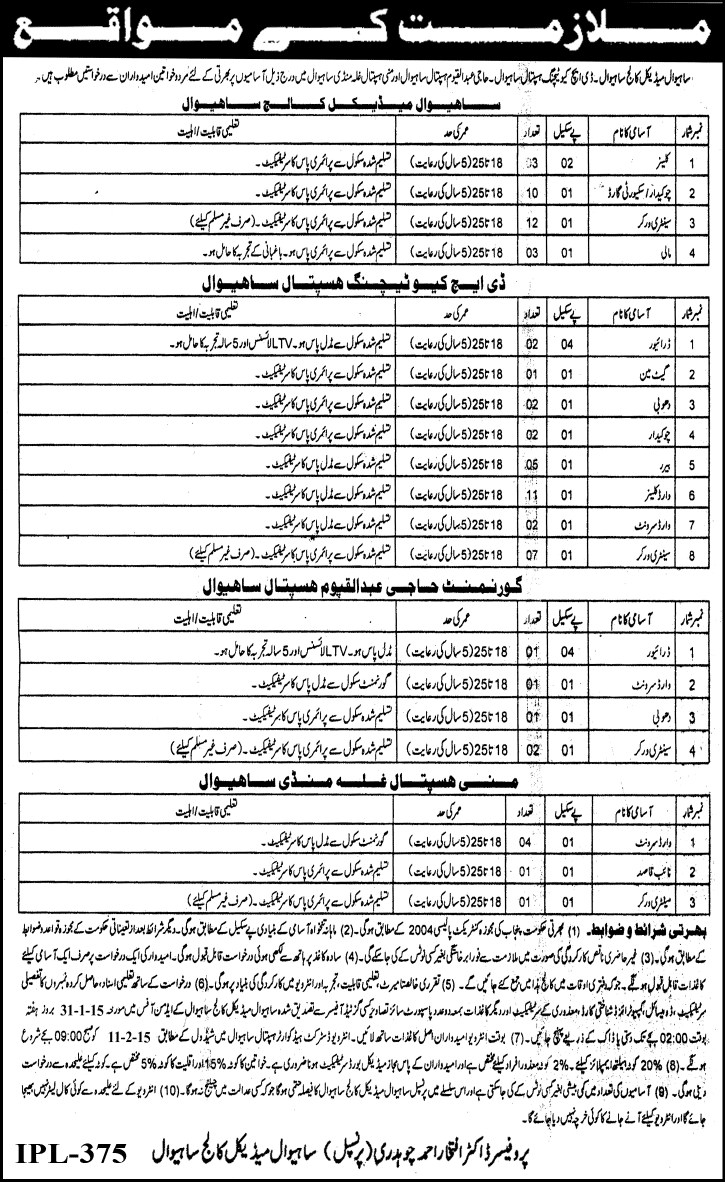 ملازمت کے مواقع
ساہیوال میڈیکل کالج ساہیوال۔ ڈی ایچ کیو ٹیچنگ ہسپتال ساہیوال۔ حاجی عبدالقیوم ہسپتال ساہیوال اور منی ہسپتال غلہ منڈی ساہیوال میں درج ذیل آسامیوں پر بھرتی کے لئے مرد و خواتین امیدواران سے درخواستیں مطلوب ہیں۔
ساہیوال میڈیکل کالج ساہیوال
نمبر شمار آسامی کا نام پے سکیل تعداد عمر کی حد تعلیمی قابلیت/اہلیت
1 کلینر 02 03 18 تا 25 (5 سال کی رعایت) تسلیم شدہ سکول سے پرائمری پاس کا سرٹیفکیٹ۔
2 چوکیدار/سکیورٹی گارڈ 01 10 18 تا 25 (5 سال کی رعایت) تسلیم شدہ سکول سے پرائمری پاس کا سرٹیفکیٹ۔
3 سینٹری ورکر 01 12 18 تا 25 (5 سال کی رعایت) تسلیم شدہ سکول سے پرائمری پاس کا سرٹیفکیٹ۔ (صرف غیر مسلم کیلئے)
4 مالی 01 03 18 تا 25 (5 سال کی رعایت) تسلیم شدہ سکول سے پرائمری پاس ہو۔ باغبانی کے تجربہ کا حامل ہو۔
ڈی ایچ کیو ٹیچنگ ہسپتال ساہیوال
نمبر شمار آسامی کا نام پے سکیل تعداد عمر کی حد تعلیمی قابلیت/اہلیت
1 ڈرائیور 04 02 18 تا 25 (5 سال کی رعایت) تسلیم شدہ سکول سے مڈل پاس ہو۔ LTV لائسنس اور 5 سالہ تجربہ کا حامل ہو۔
2 گیٹ مین 01 01 18 تا 25 (5 سال کی رعایت) تسلیم شدہ سکول سے پرائمری پاس کا سرٹیفکیٹ۔
3 دھوبی 01 02 18 تا 25 (5 سال کی رعایت) تسلیم شدہ سکول سے پرائمری پاس کا سرٹیفکیٹ۔
4 چوکیدار 01 02 18 تا 25 (5 سال کی رعایت) تسلیم شدہ سکول سے پرائمری پاس کا سرٹیفکیٹ۔
5 بیرر 01 05 18 تا 25 (5 سال کی رعایت) تسلیم شدہ سکول سے مڈل پاس کا سرٹیفکیٹ۔
6 وارڈ کلینر 01 11 18 تا 25 (5 سال کی رعایت) تسلیم شدہ سکول سے مڈل پاس کا سرٹیفکیٹ۔
7 وارڈ سرونٹ 01 02 18 تا 25 (5 سال کی رعایت) تسلیم شدہ سکول سے مڈل پاس کا سرٹیفکیٹ۔
8 سینٹری ورکر 01 07 18 تا 25 (5 سال کی رعایت) تسلیم شدہ سکول سے پرائمری پاس کا سرٹیفکیٹ۔ (صرف غیر مسلم کیلئے)
گورنمنٹ حاجی عبدالقیوم ہسپتال ساہیوال
نمبر شمار آسامی کا نام پے سکیل تعداد عمر کی حد تعلیمی قابلیت/اہلیت
1 ڈرائیور 04 01 18 تا 25 (5 سال کی رعایت) مڈل پاس ہو۔ LTV لائسنس اور 5 سالہ تجربہ کا حامل ہو۔
2 وارڈ سرونٹ 01 01 18 تا 25 (5 سال کی رعایت) گورنمنٹ سکول سے مڈل پاس کا سرٹیفکیٹ۔
3 دھوبی 01 01 18 تا 25 (5 سال کی رعایت) تسلیم شدہ سکول سے پرائمری پاس کا سرٹیفکیٹ۔
4 سینٹری ورکر 01 02 18 تا 25 (5 سال کی رعایت) تسلیم شدہ سکول سے پرائمری پاس کا سرٹیفکیٹ۔ (صرف غیر مسلم کیلئے)
منی ہسپتال غلہ منڈی ساہیوال
نمبر شمار آسامی کا نام پے سکیل تعداد عمر کی حد تعلیمی قابلیت/اہلیت
1 وارڈ سرونٹ 01 04 18 تا 25 (5 سال کی رعایت) گورنمنٹ سکول سے مڈل پاس کا سرٹیفکیٹ۔
2 نائب قاصد 01 01 18 تا 25 (5 سال کی رعایت) تسلیم شدہ سکول سے پرائمری پاس کا سرٹیفکیٹ۔
3 سینٹری ورکر 01 01 18 تا 25 (5 سال کی رعایت) تسلیم شدہ سکول سے پرائمری پاس کا سرٹیفکیٹ۔ (صرف غیر مسلم کیلئے)
بھرتی شرائط و ضوابط۔ (1) بھرتی حکومت پنجاب کی مجوزہ کنٹریکٹ پالیسی 2004 کے مطابق ہوگی۔ (2) ماہانہ تنخواہ آسامی کے بنیادی پے سکیل کے مطابق ہوگی۔ دیگر شرائط بعد از تعیناتی حکومت کے مجوزہ قواعد و ضوابط
کے مطابق ہوگی۔ (3) غیر حاضری/ناقص کارکردگی کی صورت میں ملازمت سے فوراً برخاستگی بغیر کسی نوٹس کے کی جاسکے گی۔ (4) سادہ کاغذ پر ہاتھ سے لکھی ہوئی درخواست قابل قبول ہوگی۔ امیدوار کی ایک درخواست پر صرف ایک آسامی کیلئے
کاغذات قابل قبول ہونگے۔ جو کہ دفتری اوقات میں کالج ہذا میں جمع کئے جائیں گے۔ (5) تقرری خالصتاً میرٹ، تعلیمی قابلیت، تجربہ اور انٹرویو میں کارکردگی کی بنیاد پر ہوگی۔ (6) درخواست کے ساتھ تعلیمی اسناد، حاصل کردہ نمبروں کا تفصیلی
سرٹیفکیٹ، ڈومیسائل، کمپیوٹرائزڈ شناختی کارڈ، معذوری کے سرٹیفکیٹ اور دیگر کاغذات بمعہ دو عدد پاسپورٹ سائز تصاویر کسی گزٹیڈ آفیسر سے تصدیق شدہ ساہیوال میڈیکل کالج ساہیوال کے ایڈمن آفس میں مورخہ 31-1-15 بروز ہفتہ
بوقت 02:00 بجے تک دستی یا ڈاک کے ذریعے پہنچ جائیں۔ (7) بوقت انٹرویو امیدواران اصل کاغذات ساتھ لائیں۔ انٹرویو ڈسٹرکٹ ہیڈ کوارٹر ہسپتال ساہیوال میں شیڈول کے مطابق 11-2-15 کو صبح 09:00 بجے شروع
ہونگے۔ (8) 20% کوٹہ ہیلتھ ایمپلائز کیلئے۔ 2% کوٹہ معذور افراد کیلئے مختص ہے اور امیدواران کے پاس مجاز میڈیکل بورڈ سرٹیفکیٹ ہونا ضروری ہے۔ خواتین کا کوٹہ 15% اور اقلیت کا کوٹہ 5% مختص ہے۔ کوٹہ کیلئے علیحدہ سے درخواست
دینی ہوگی۔ (9) آسامیوں کی تعداد میں کمی بیشی بغیر کسی نوٹس کے کی جاسکتی ہے اور اس سلسلے میں پرنسپل ساہیوال میڈیکل کالج ساہیوال کا فیصلہ حتمی ہوگا جو کہ کسی عدالت میں چیلنج نہ ہوگا۔ (10) انٹرویو کے لئے علیحدہ سے کوئی کال لیٹر نہیں بھیجا
جائے گا اور انٹرویو کیلئے آنے جانے کا کوئی خرچہ نہیں دیا جائے گا۔
پروفیسر ڈاکٹر افتخار احمد چوہدری (پرنسپل) ساہیوال میڈیکل کالج ساہیوال
IPL-375